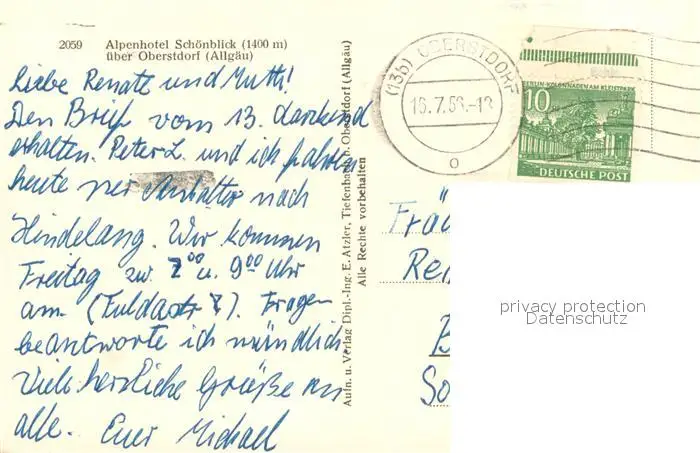 2059 Alpenhotel Schönblick (1400 m)
über Oberstdorf (Allgäu)
Liebe Renate und Mutti!
Den Brief vom 13. dankend
erhalten. Peter L. und ich fahren
heute per Anhalter nach
Hindelang. Wir kommen
Freitag zw. 7⁰⁰ u. 9⁰⁰ Uhr
am (Fuldastr 7). Fragen
beantworte ich mündlich
Viele herzliche Grüße an
alle. Euer Michael
Aufn. u. Verlag Dipl.-Ing. E. Atzler, Tiefenbach b. Oberstdorf (Allgäu)
Alle Rechte vorbehalten
(13b) OBERSTDORF
16.7.56.-18
o
BERLIN-KOLONNADEN AM KLEISTPARK
10
DEUTSCHE POST
Fräu
Re
B
So
privacy protection
Datenschutz